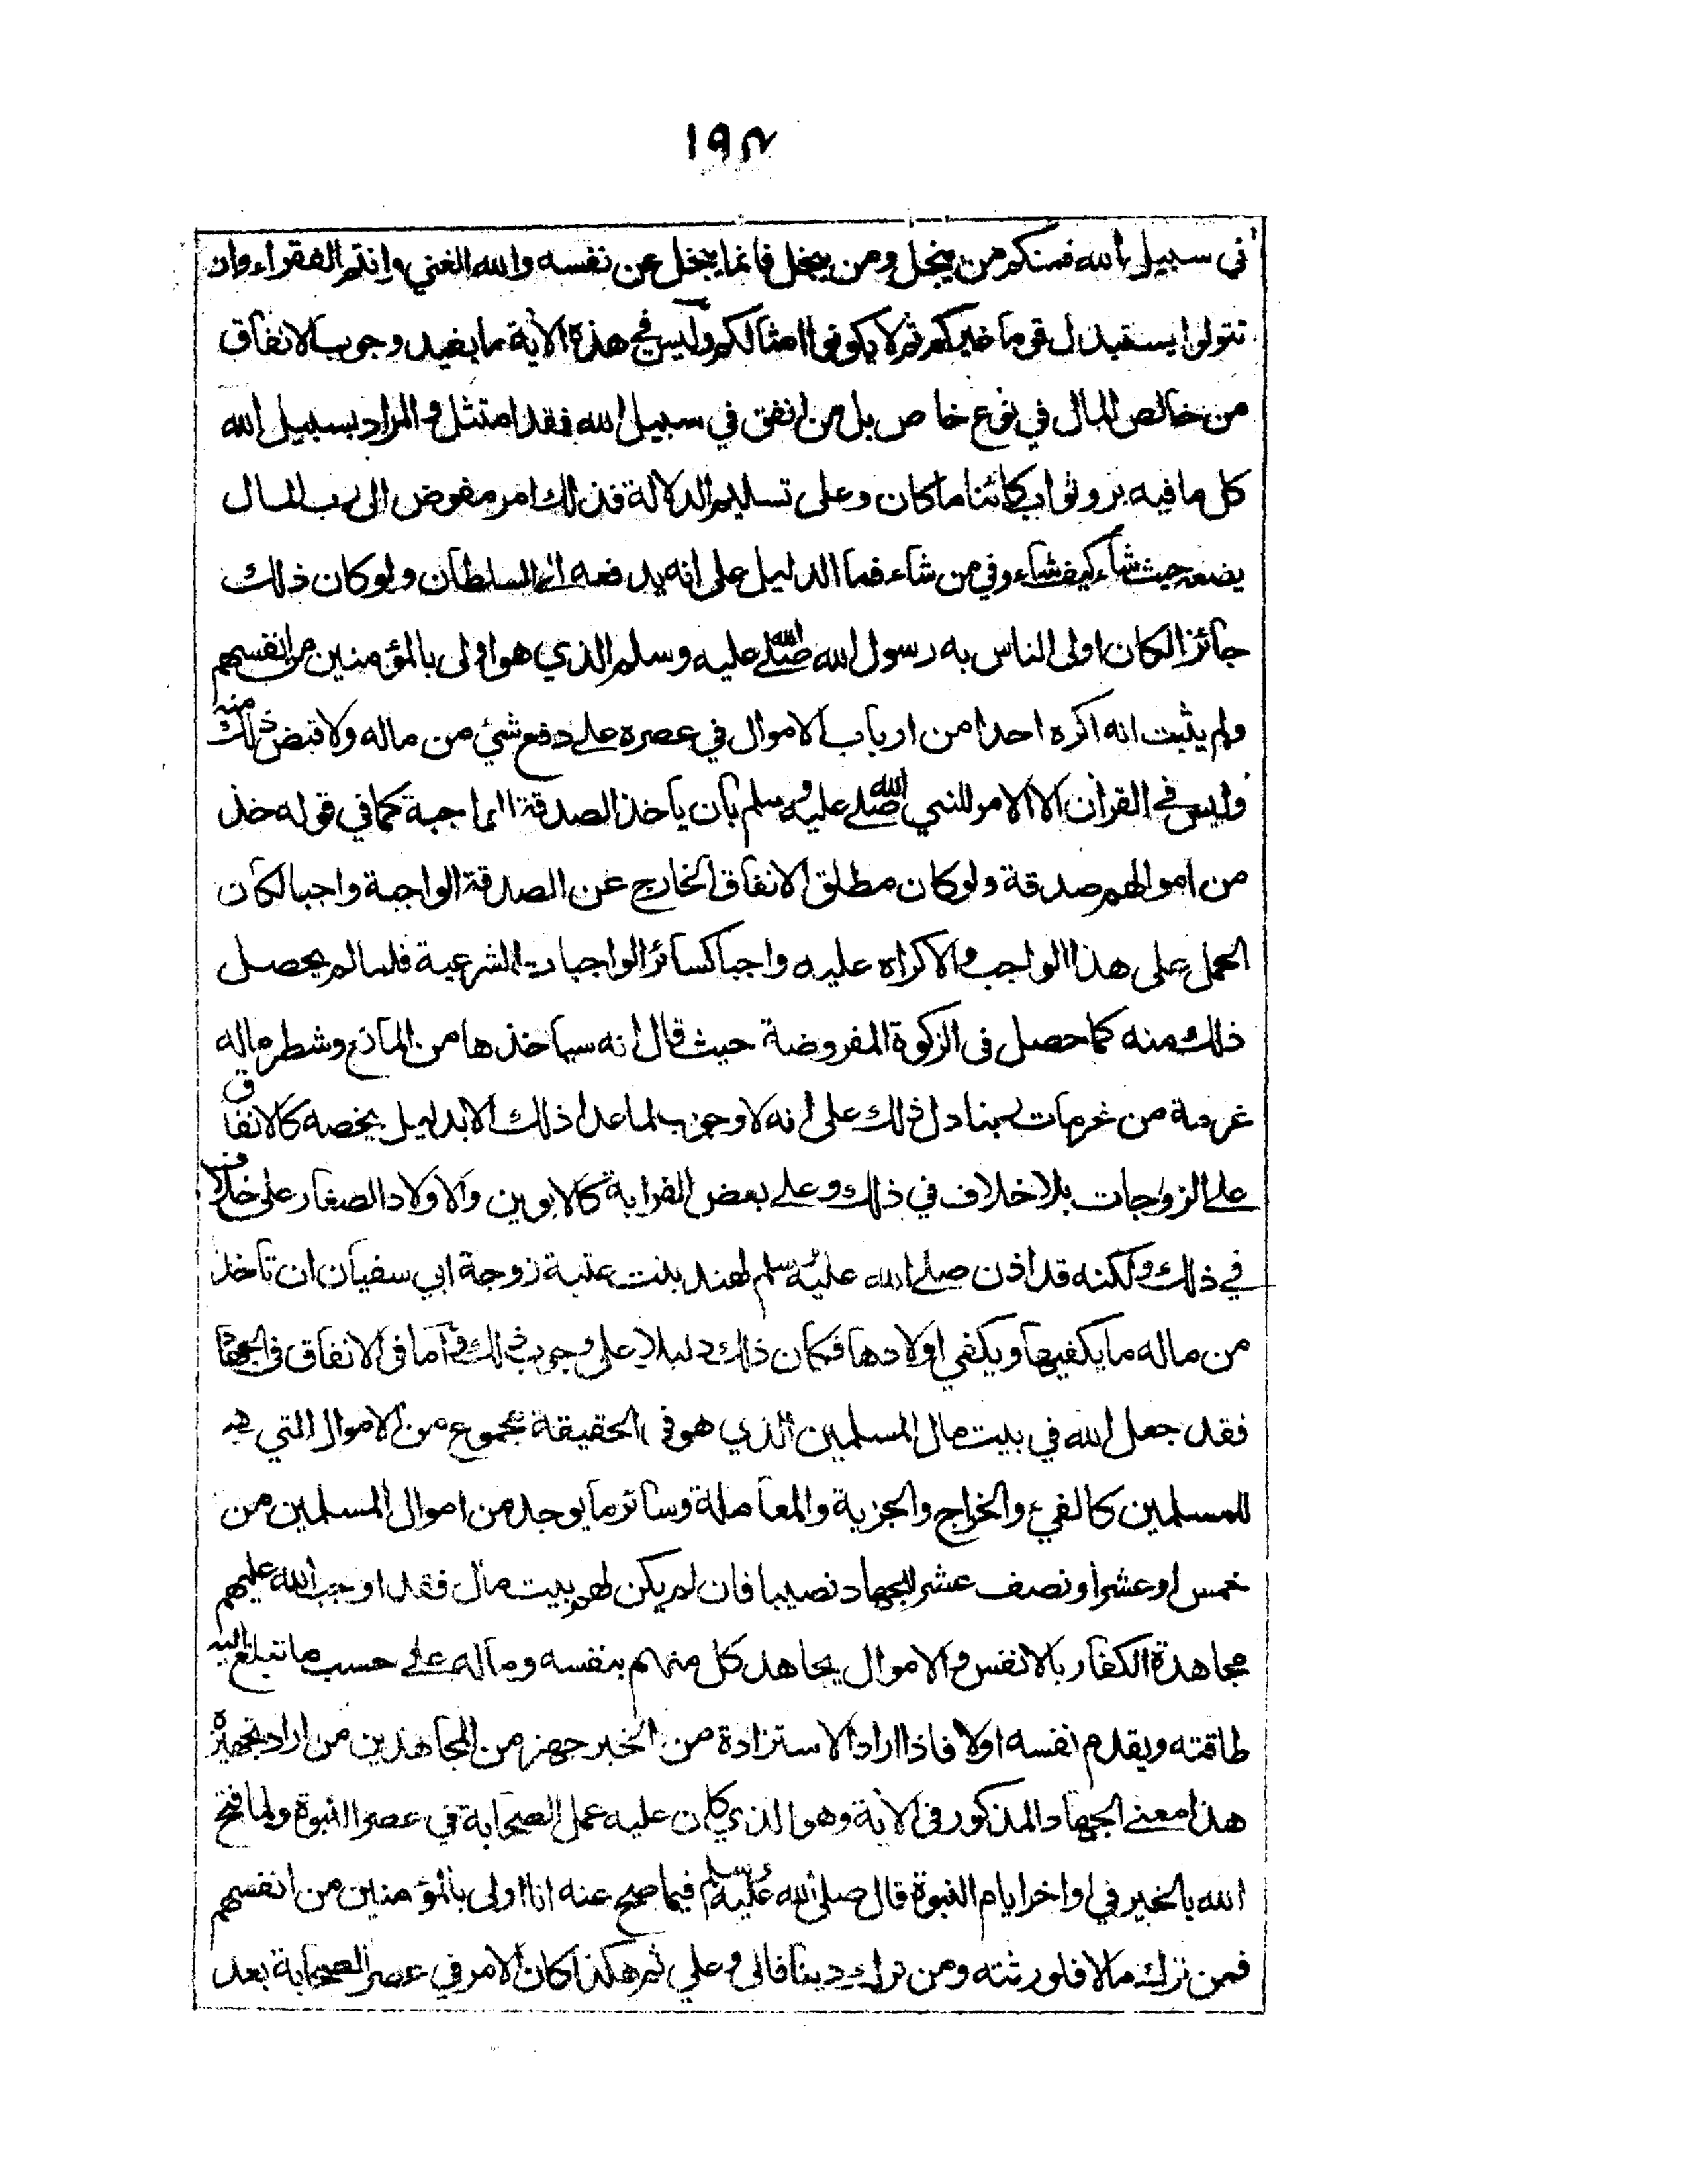 ١٩٤
في سبيل الله فمنكم من يبخل ومن يبخل فانما يبخل عن نفسه والله الغني وانتم الفقراء وان
تتولوا يستبدل قوما غيركم ثم لا يكونوا امثالكم وليس في هذة الآية ما يفيد وجوب الانفاق
من خالص المال في نوع خاص بل من انفق في سبيل الله فقد امتثل والمراد بسبيل الله
كل ما فيه بر وثواب كائنا ما كان وعلى تسليم الدلالة فذلك امر مفوض الى رب المال
يضعه حيث شاء كيف شاء وفي من شاء فما الدليل على انه يدفعه الى السلطان ولو كان ذلك
جائزا لكان اولى الناس به رسول الله صلى الله عليه وسلم الذي هو اولى بالمؤمنين من انفسهم
ولم يثبت انه اكره احدا من ارباب الاموال في عصره على دفع شيء من ماله ولا قبض ذلك منه
وليس في القرآن الا الامر للنبي صلى الله عليه وسلم بان يأخذ الصدقة الواجبة كما في قوله خذ
من اموالهم صدقة ولو كان مطلق الانفاق الخارج عن الصدقة الواجبة واجبا لكان
الحمل على هذا الواجب والاكراه عليه واجبا كسائر الواجبات الشرعية فلما لم يحصل
ذلك منه كما حصل في الزكوة المفروضة حيث قال انه سيأخذها من المانع وشطر ماله
غرمة من غرمات ربنا دل ذلك على انه لا وجوب لما عدا ذلك الا بدليل يخصه كالانفاق
على الزوجات بلا خلاف في ذلك وعلى بعض القرابة كالابوين والاولاد الصغار على خلاف
في ذلك ولكنه قد اذن صلى الله عليه وسلم لهند بنت عتبة زوجة ابي سفيان ان تأخذ
من ماله ما يكفيها ويكفي اولادها فكان ذلك دليلا على وجوب ذلك واما في الانفاق في الجهاد
فقد جعل الله في بيت مال المسلمين الذي هو في الحقيقة مجموع من الاموال التي هي
للمسلمين كالفيء والخراج والجزية والمعاملة وسائر ما يوجد من اموال المسلمين من
خمس او عشر او نصف عشر للجهاد نصيبا فان لم يكن لهم بيت مال فقد اوجب الله عليهم
مجاهدة الكفار بالانفس والاموال يجاهد كل منهم بنفسه وماله على حسب ما تبلغ اليه
طاقته ويقدم نفسه اولا فاذا اراد الاستزادة من الخير جهز من المجاهدين من اراد تجهيزه
هذا معنى الجهاد المذكور في الآية وهو الذي كان عليه عمل الصحابة في عصر النبوة ولما فتح
الله بالخير في اواخر ايام النبوة قال صلى الله عليه وسلم فيما صح عنه انا اولى بالمؤمنين من انفسهم
فمن ترك مالا فلورثته ومن ترك دينا فالي وعلي ثم هكذا كان الامر في عصر الصحابة بعد